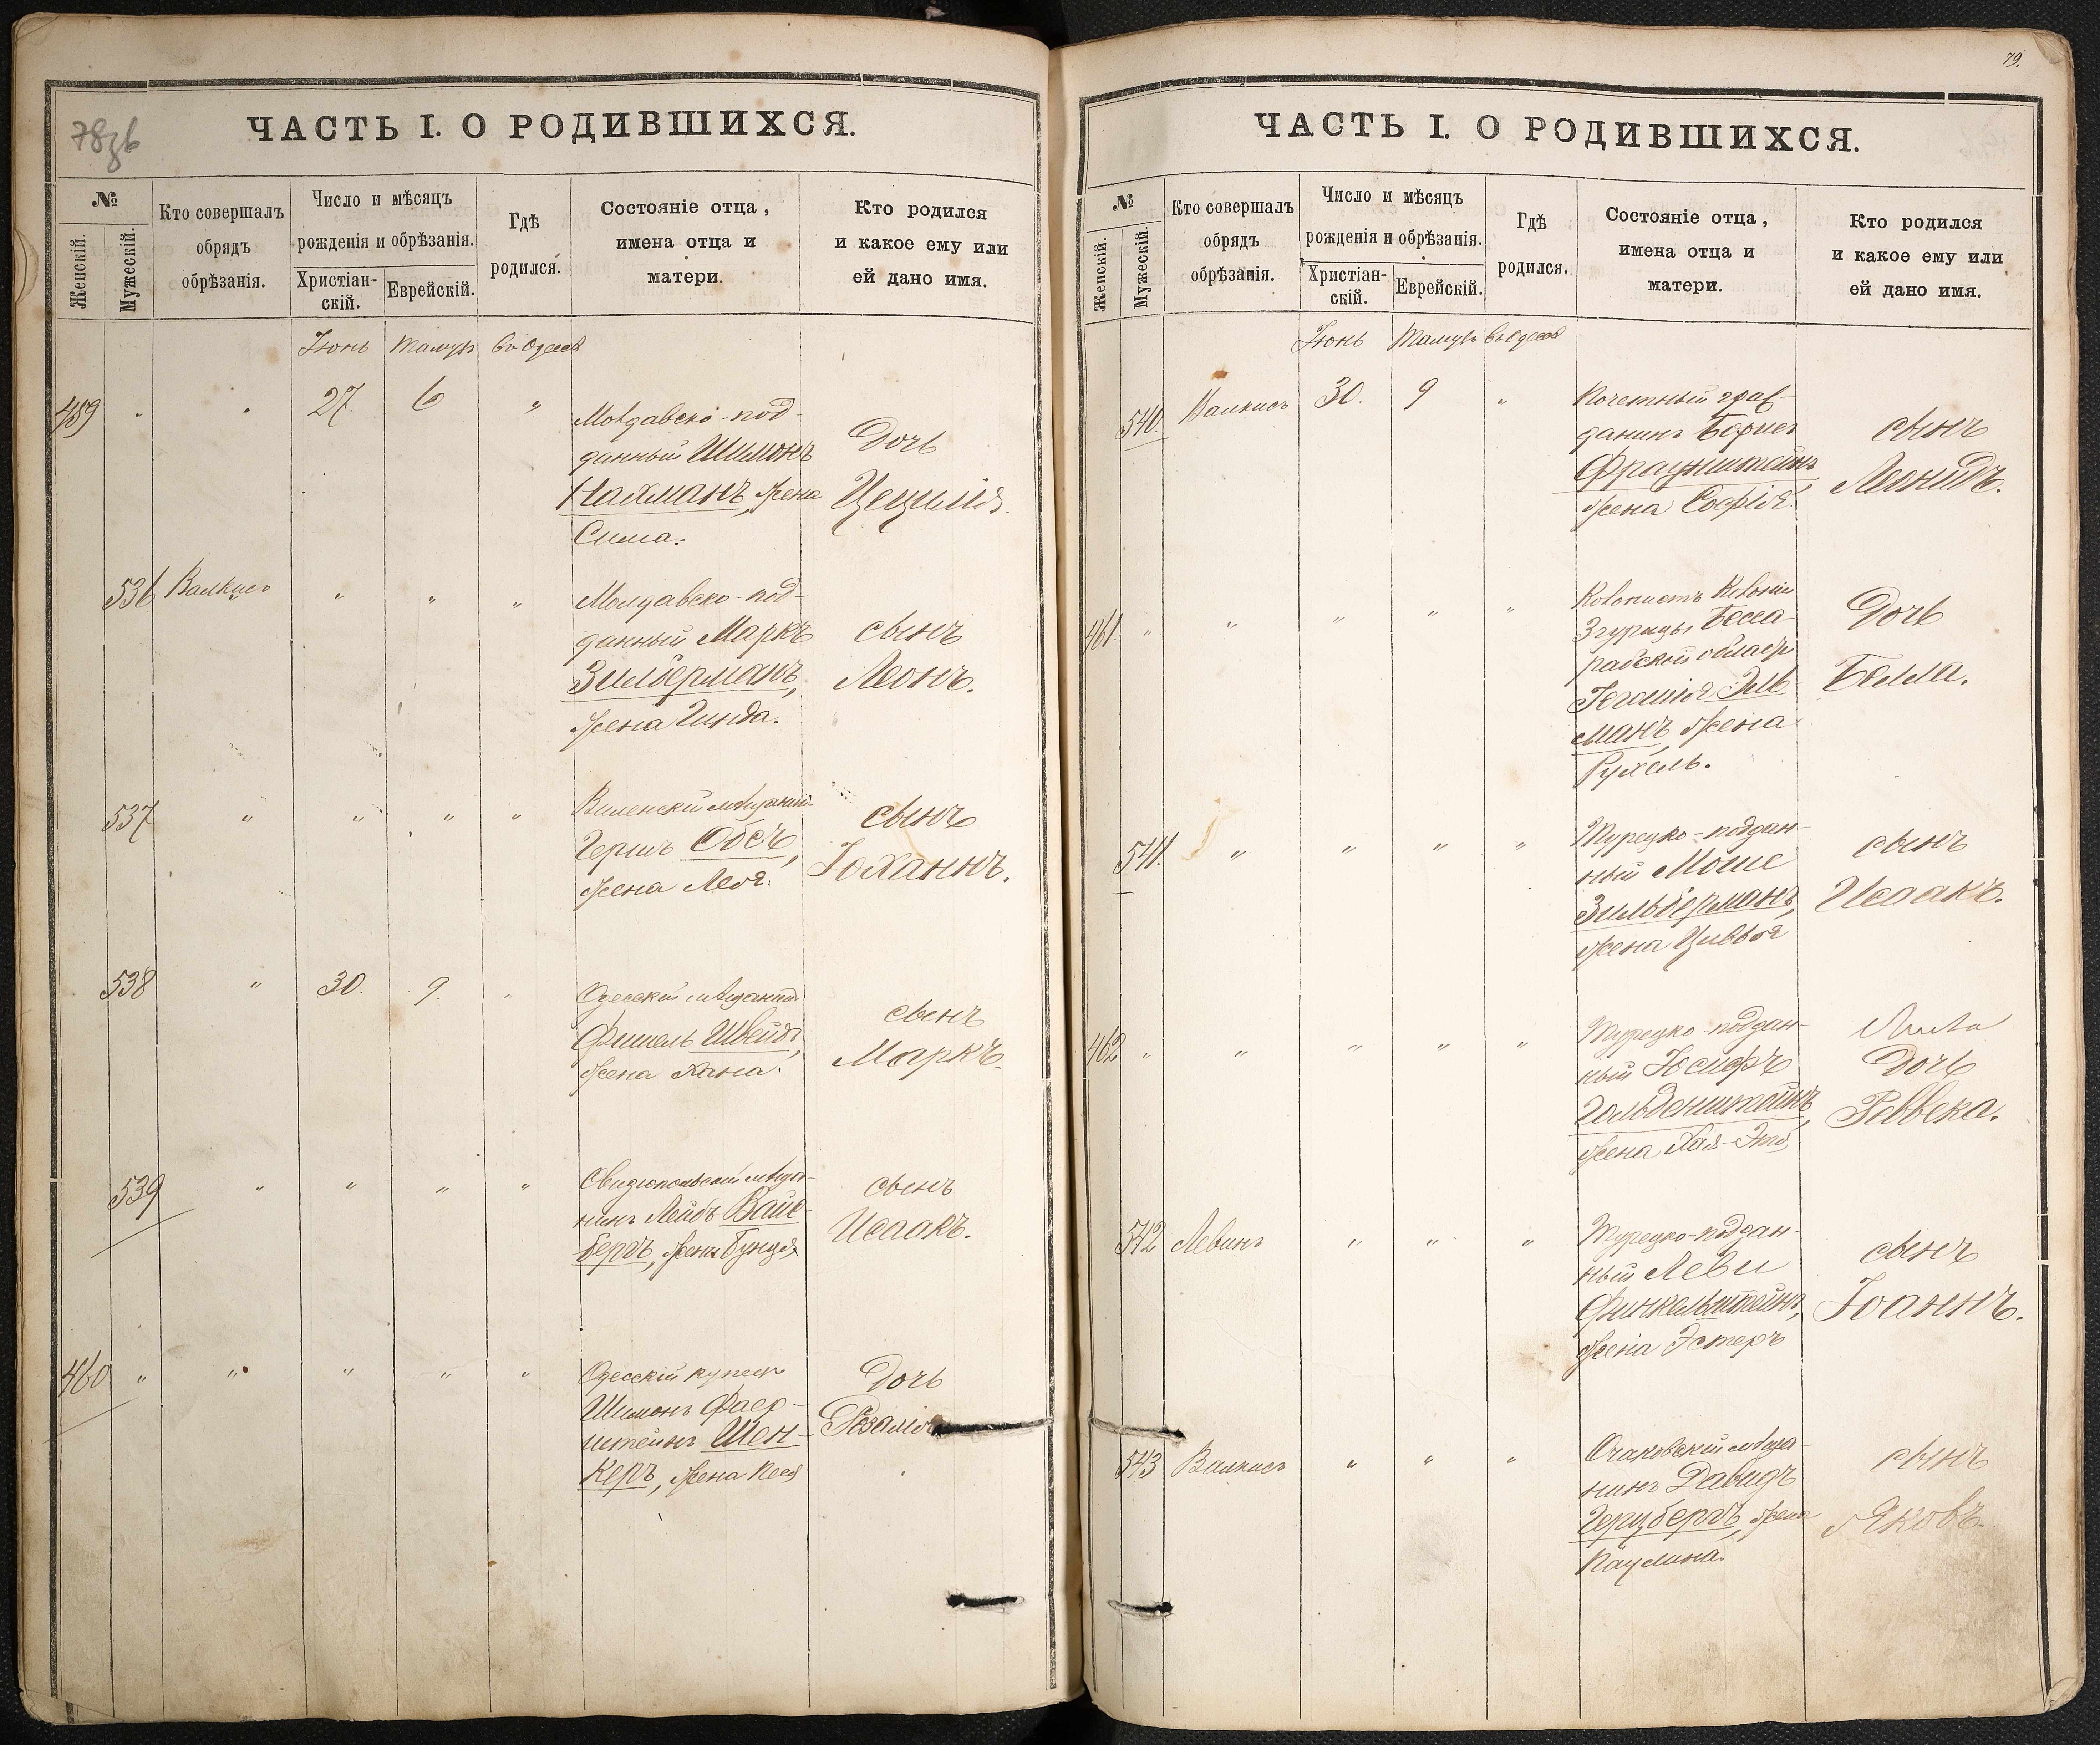 78зв
ЧАСТЬ I. О РОДИВШИХСЯ.
№
Женскій.
Мужескій.
Кто совершалъ
обрядъ
обрѣзанія.
Число и мѣсяцъ
рожденія и обрѣзанія.
Христіан-
скій.
Еврейскій.
Гдѣ
родился.
Состояніе отца,
имена отца и
матери.
Кто родился
и какое ему или
ей дано имя.
Іюнь Тамузъ въ Одессѣ
459 " " 27. 6 "
Молдавско-под-
данный Шимонъ
Нахманъ, жена
Сима.
Дочь
Цецилія.
536 Валкисъ " " "
Молдавско-под-
данный Маркъ
Зильберманъ,
жена Гинда.
сынъ
Леонъ.
537 " " " "
Виленскій мѣщанинъ
Гершъ Обсъ,
жена Лея.
сынъ
Іоханнъ.
538 " 30. 9. "
Одесскій мѣщанинъ
Фишель Швейдъ,
жена Хана.
сынъ
Маркъ.
539 " " " "
Овидіопольскій мѣща-
нинъ Лейбъ Вайс-
бергъ, жена Бунця
сынъ
Исаакъ.
460 " " " " "
Одесскій купецъ
Шимонъ Фаер-
штейнъ Шен-
керъ, жена Песя
Дочь
Розалія
79.
ЧАСТЬ I. О РОДИВШИХСЯ.
№
Женскій.
Мужескій.
Кто совершалъ
обрядъ
обрѣзанія.
Число и мѣсяцъ
рожденія и обрѣзанія.
Христіан-
скій.
Еврейскій.
Гдѣ
родился.
Состояніе отца,
имена отца и
матери.
Кто родился
и какое ему или
ей дано имя.
Іюнь Тамузъ въ Одессѣ
540. Валкисъ 30. 9 "
Почетный граж-
данинъ Борисъ
Фраунштейнъ,
жена Софія.
сынъ
Леонидъ.
461. " " " " "
Колонистъ Колоніи
Згурицы Бесса-
рабской области
Гешія Эль-
манъ, жена
Рухель.
Дочь
Белла.
541. " " " "
Турецко-поддан-
ный Моше
Зильберманъ,
жена Цивья
сынъ
Исаакъ.
462 " " " " "
Турецко-поддан-
ный Іосифъ
Гольденштейнъ,
жена Хая-Этя
Дочь
Реввека.
542 Левинъ " " "
Турецко-поддан-
ный Леви
Финкельштейнъ,
жена Эстеръ
сынъ
Іоаннъ.
543 Валкисъ " " "
Очаковскій мѣща-
нинъ Давидъ
Герцбергъ, жена
Паулина.
сынъ
Яковъ.